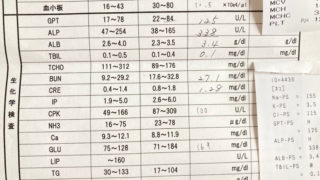 血小板 16～43 30～80 ×10e4/μl
GPT 17～78 22～84. 125 U/L
ALP 47～254 38～165 338 U/L
ALB 2.6～4.0 2.3～3.5 3.4 g/dl
TBIL 0.1～0.5 0.1～0.4 0.1 mg/dl
TCHO 111～312 89～176 mg/dl
BUN 9.2～29.2 17.6～32.8 27.1 mg/dl
CRE 0.4～1.4 0.8～1.8 1.28 mg/dl
IP 1.9～5.0 2.6～6.0 mg/dl
CPK 49～166 87～309 100 U/L
NH3 16～75 23～78 μg/dl
Ca 9.3～12.1 8.8～11.9 mg/dl
GLU 75～128 71～184 mg/dl
LIP ～160 U/L
TG 30～133 17～104 mg/dl
生化学検査
MCV
MCH
MCHC
PLT
ID=4430
[#1]
Na-PS = 155
K-PS = 3.5
Cl-PS = 115
GPT-PS H
ALP-PS H
= 338
ALB-PS = 3.4
TBIL-P